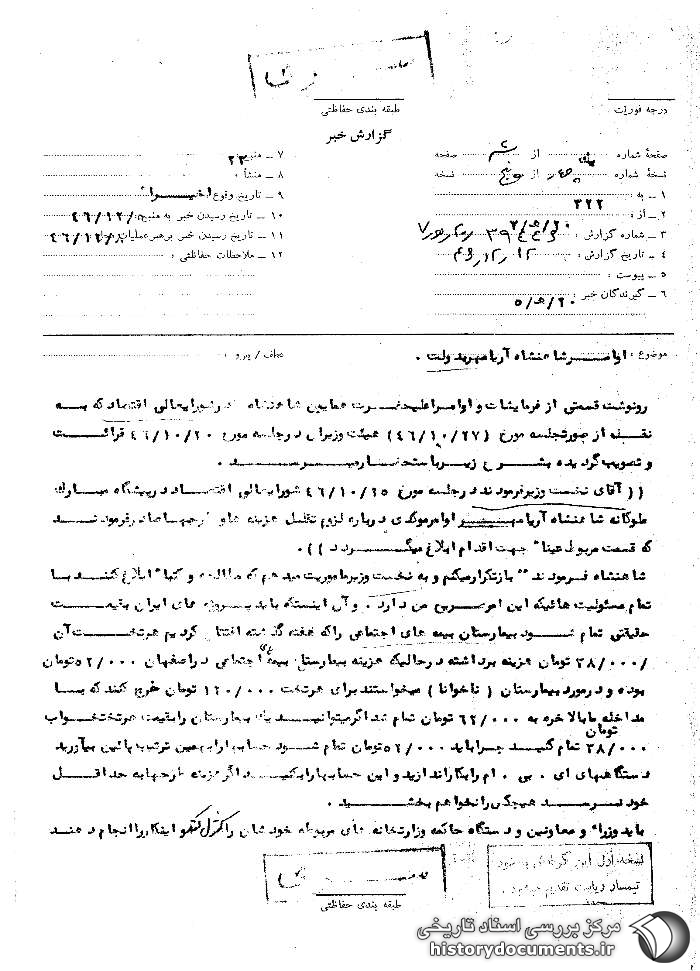 طبقه بندی حفاظتی
درجه فوریت
گزارش خبر
صفحهٔ شماره از صفحه
نسخهٔ شماره از نسخه
۱ ـ به : ۳۲۲
۲ ـ از :
۳ ـ شماره گزارش :
۴ ـ تاریخ گزارش :
۵ ـ پیوست :
۶ ـ گیرندگان خبر : ۲۰/ه/۵
۷ ـ منبع
۸ ـ منشأ :
۹ ـ تاریخ وقوع : اخیراً
۱۰ ـ تاریخ رسیدن خبر به منبع :
۱۱ ـ تاریخ رسیدن خبر برهبر عملیات
۱۲ ـ ملاحظات حفاظتی :
موضوع : اوامر شاهنشاه آریامهر بدولت .
رونوشت قسمتی از فرمایشات و اوامر اعلیحضرت همایون شاهنشاه در شورایعالی اقتصاد که به
نقل از صورتجلسه مورخ (۴۶/۱۰/۲۷) هیئت وزیران در جلسه مورخ ۴۶/۱۰/۲۰ قرائت
و تصویب گردیده بشرح زیر باستحضار میرسد .
(( آقای نخست وزیر فرمودند در جلسه مورخ ۴۶/۱۰/۲۵ شورایعالی اقتصاد در پیشگاه مبارک
ملوکانه شاهنشاه آریامهر اوامر موکدی درباره لزوم تقلیل هزینه ها و طرحها صادر فرمودند
که قسمت مربوط عیناً جهت اقدام ابلاغ میگردد )) .
شاهنشاه فرمودند " باز تکرار میکنم و به نخست وزیر ماموریت میدهم که مطالعه و کتباً ابلاغ کند با
تمام مسئولیت هائیکه این امر در بر می دارد . و آن اینستکه باید پروژه های ایران بقیمت
حقیقی تمام شود بیمارستان بیمه های اجتماعی را که هفته گذشته افتتاح کردیم هر تخت آن
۳۸/۰۰۰ تومان هزینه برداشته در حالیکه هزینه بیمارستان بیمه های اجتماعی در اصفهان ۵۲/۰۰۰ تومان
بوده و در مورد بیمارستان ( ناخوانا ) میخواستند برای هر تخت ۱۲۰/۰۰۰ تومان خرج کنند که با
مداخله ما بالاخره به ۶۲/۰۰۰ تومان تمام شد اگر میتوانید یک بیمارستان را بقیمت هر تختخواب
۳۸/۰۰۰ تومان تمام کنید چرا باید ۵۲/۰۰۰ تومان تمام شود حسابها را بهمین ترتیب پائین بیآورید
دستگاههای ای . بی . ام را بکار اندازید و این حسابها را بکنید اگر هزینه طرحها به حداقل
خود نرسد هیچکس را نخواهم بخشید .
باید وزراء و معاونین و دستگاه حاکمه وزارتخانه های مربوطه خودشان را کنترل کنند و اینکار را انجام دهند
نسخه اول این گزارش
تیمسار ریاست تقدیم میشود
طبقه بندی حفاظتی
مرکز بررسی اسناد تاریخی
historydocuments.ir